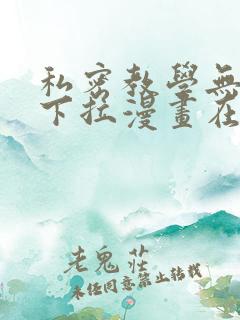 私密教學無
下拉漫畫在
老鬼莊
未經同意禁止轉載